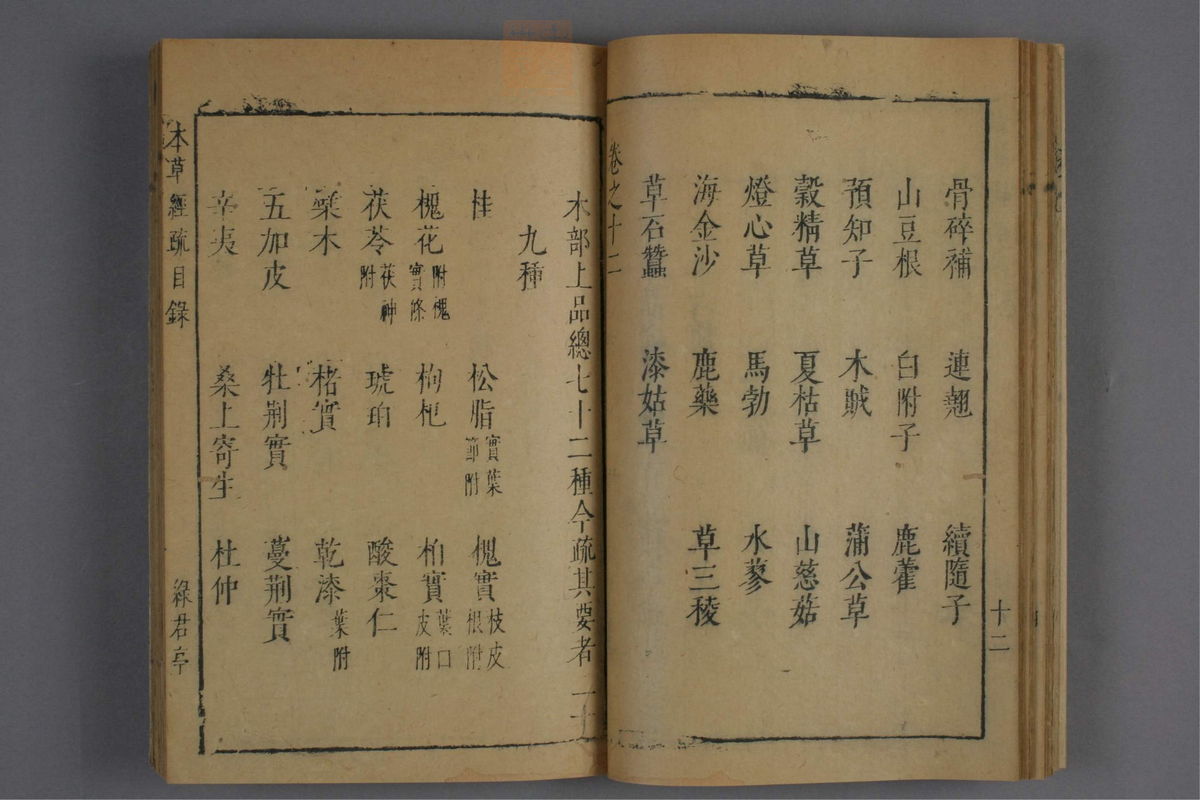 骨碎補 連翹 續隨子
山豆根 白附子 鹿藿
預知子 木賊 蒲公草
穀精草 夏枯草 山慈菇
燈心草 馬勃 水蓼
海金沙 鹿藥 草三稜
草石蠶 漆姑草
卷之十二
十二
木部上品總七十二種今疏其要者二十
九種
桂 松脂實葉節附 槐實枝皮根附
槐花附槐實條 枸杞 柏實葉白皮附
茯苓茯神附 琥珀 酸棗仁
櫱木 楮實 乾漆葉附
五加皮 牡荊實 蔓荊實
辛夷 桑上寄生 杜仲
本草經疏目錄
綠君亭